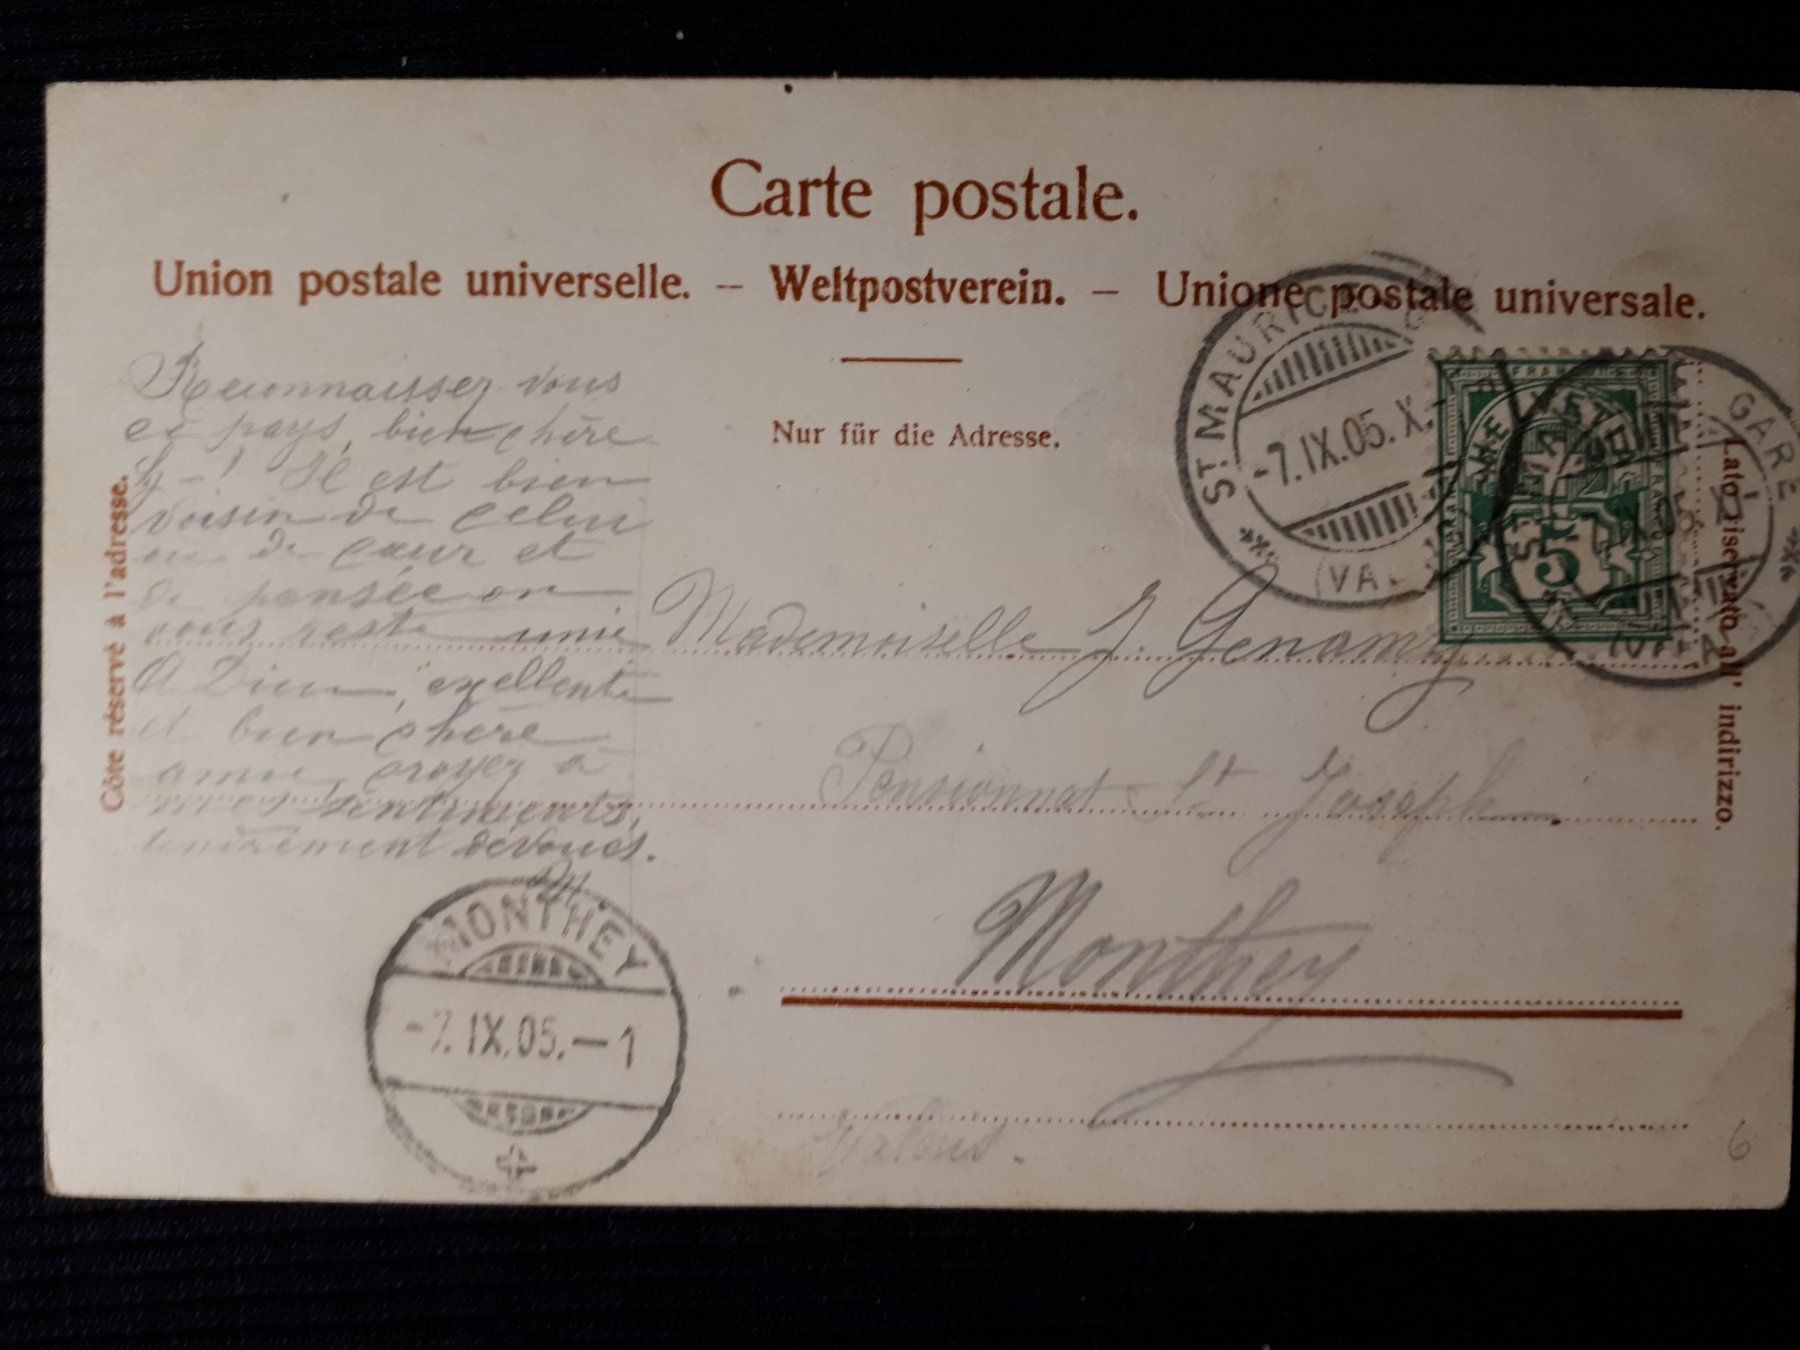 Carte postale.
Union postale universelle. – Weltpostverein. – Unione postale universale.
Nur für die Adresse.
Côté réservé à l'adresse.
Lato riservato all' indirizzo.
Reconnaissez vous
ce pays, bien chère
J–! Il est bien
voisin de celui
ou de cœur et
de pensée on
vous reste unie
A Dieu, excellente
et bien chère
amie, croyez à
mes sentiments,
tendrement dévoués.
M.
Mademoiselle J. Genamy
Pensionnat St Joseph
Monthey
Valais.
ST MAURICE
-7.IX.05.X.-
(VA
FRANCO
HELVETIA
FRANCO
FRANCO
5
ST MA
GARE
05.XI-
MONTHEY
-7.IX.05.—1
6